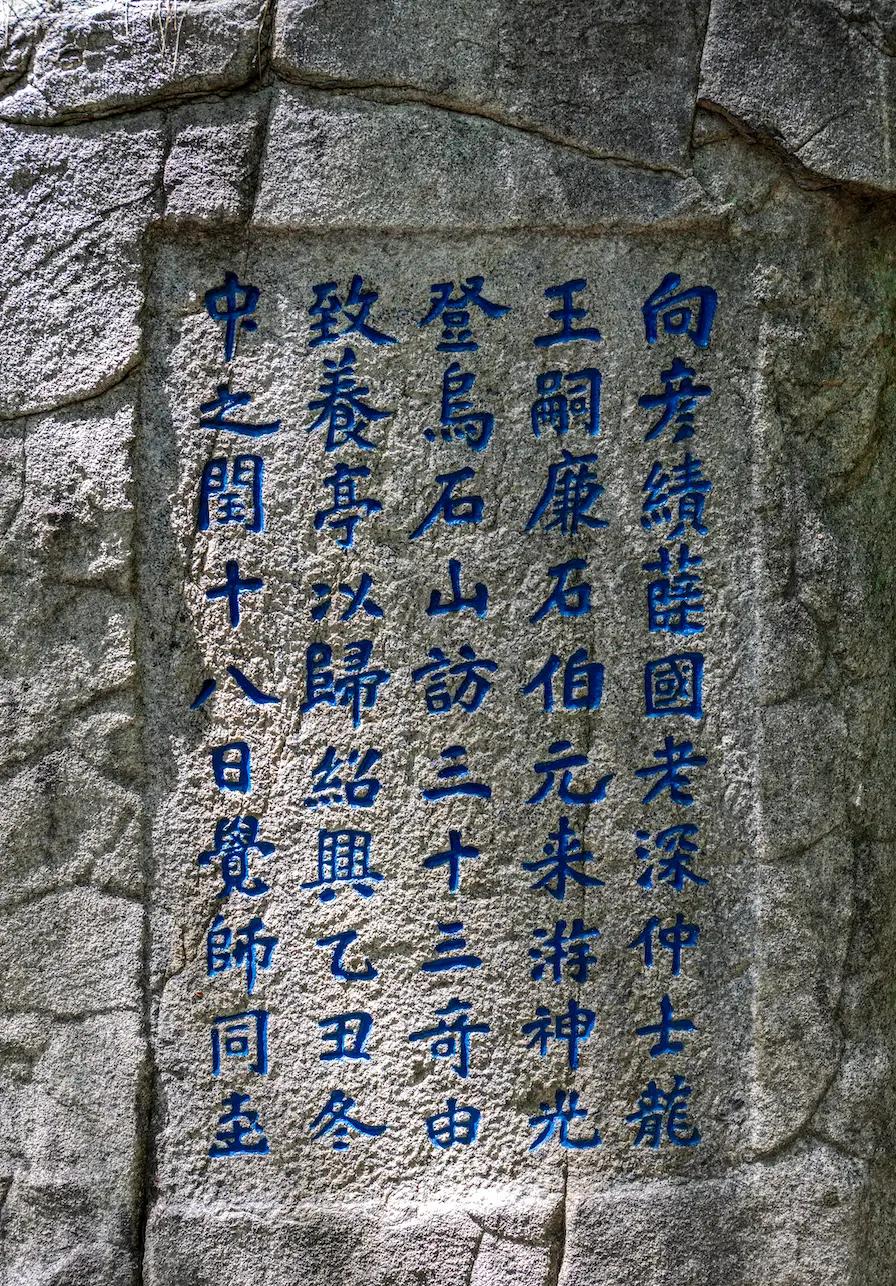 向彦績國老深仲士龍
王嗣廉石伯元来游神光
登烏石山訪三十三奇由
致養亭以歸紹興乙丑冬
中之閏十八日覺師同